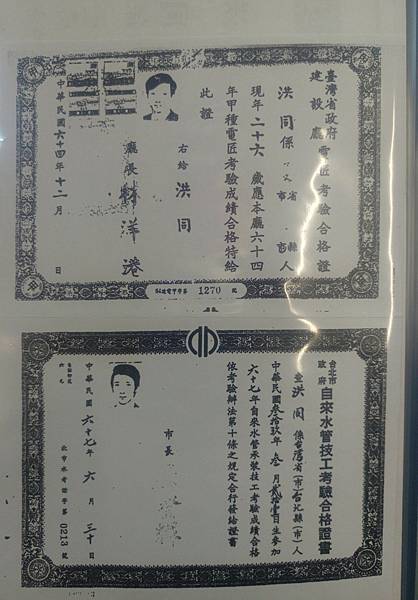 臺灣省政府
建設廳
電匠考驗合格證
洪同係
省
縣
市
市
人
現年二十六歲應本廳六十四
年甲種電匠考驗成績合格特給
此證
右給洪同
廳長林洋港
中華民國六十四年十二月 日
1270 號
台北市
政府
自來水管技工考驗合格證書
查洪同係台灣省(市)台北縣(市)人
中華民國叁拾玖年叁月貳拾壹日生參加
六十七年自來水管承裝技工考驗成績合格
依考驗辦法第十條之規定合行發給證書
市長
中華民國六十七年六月三十日
北市水考證字第0213號